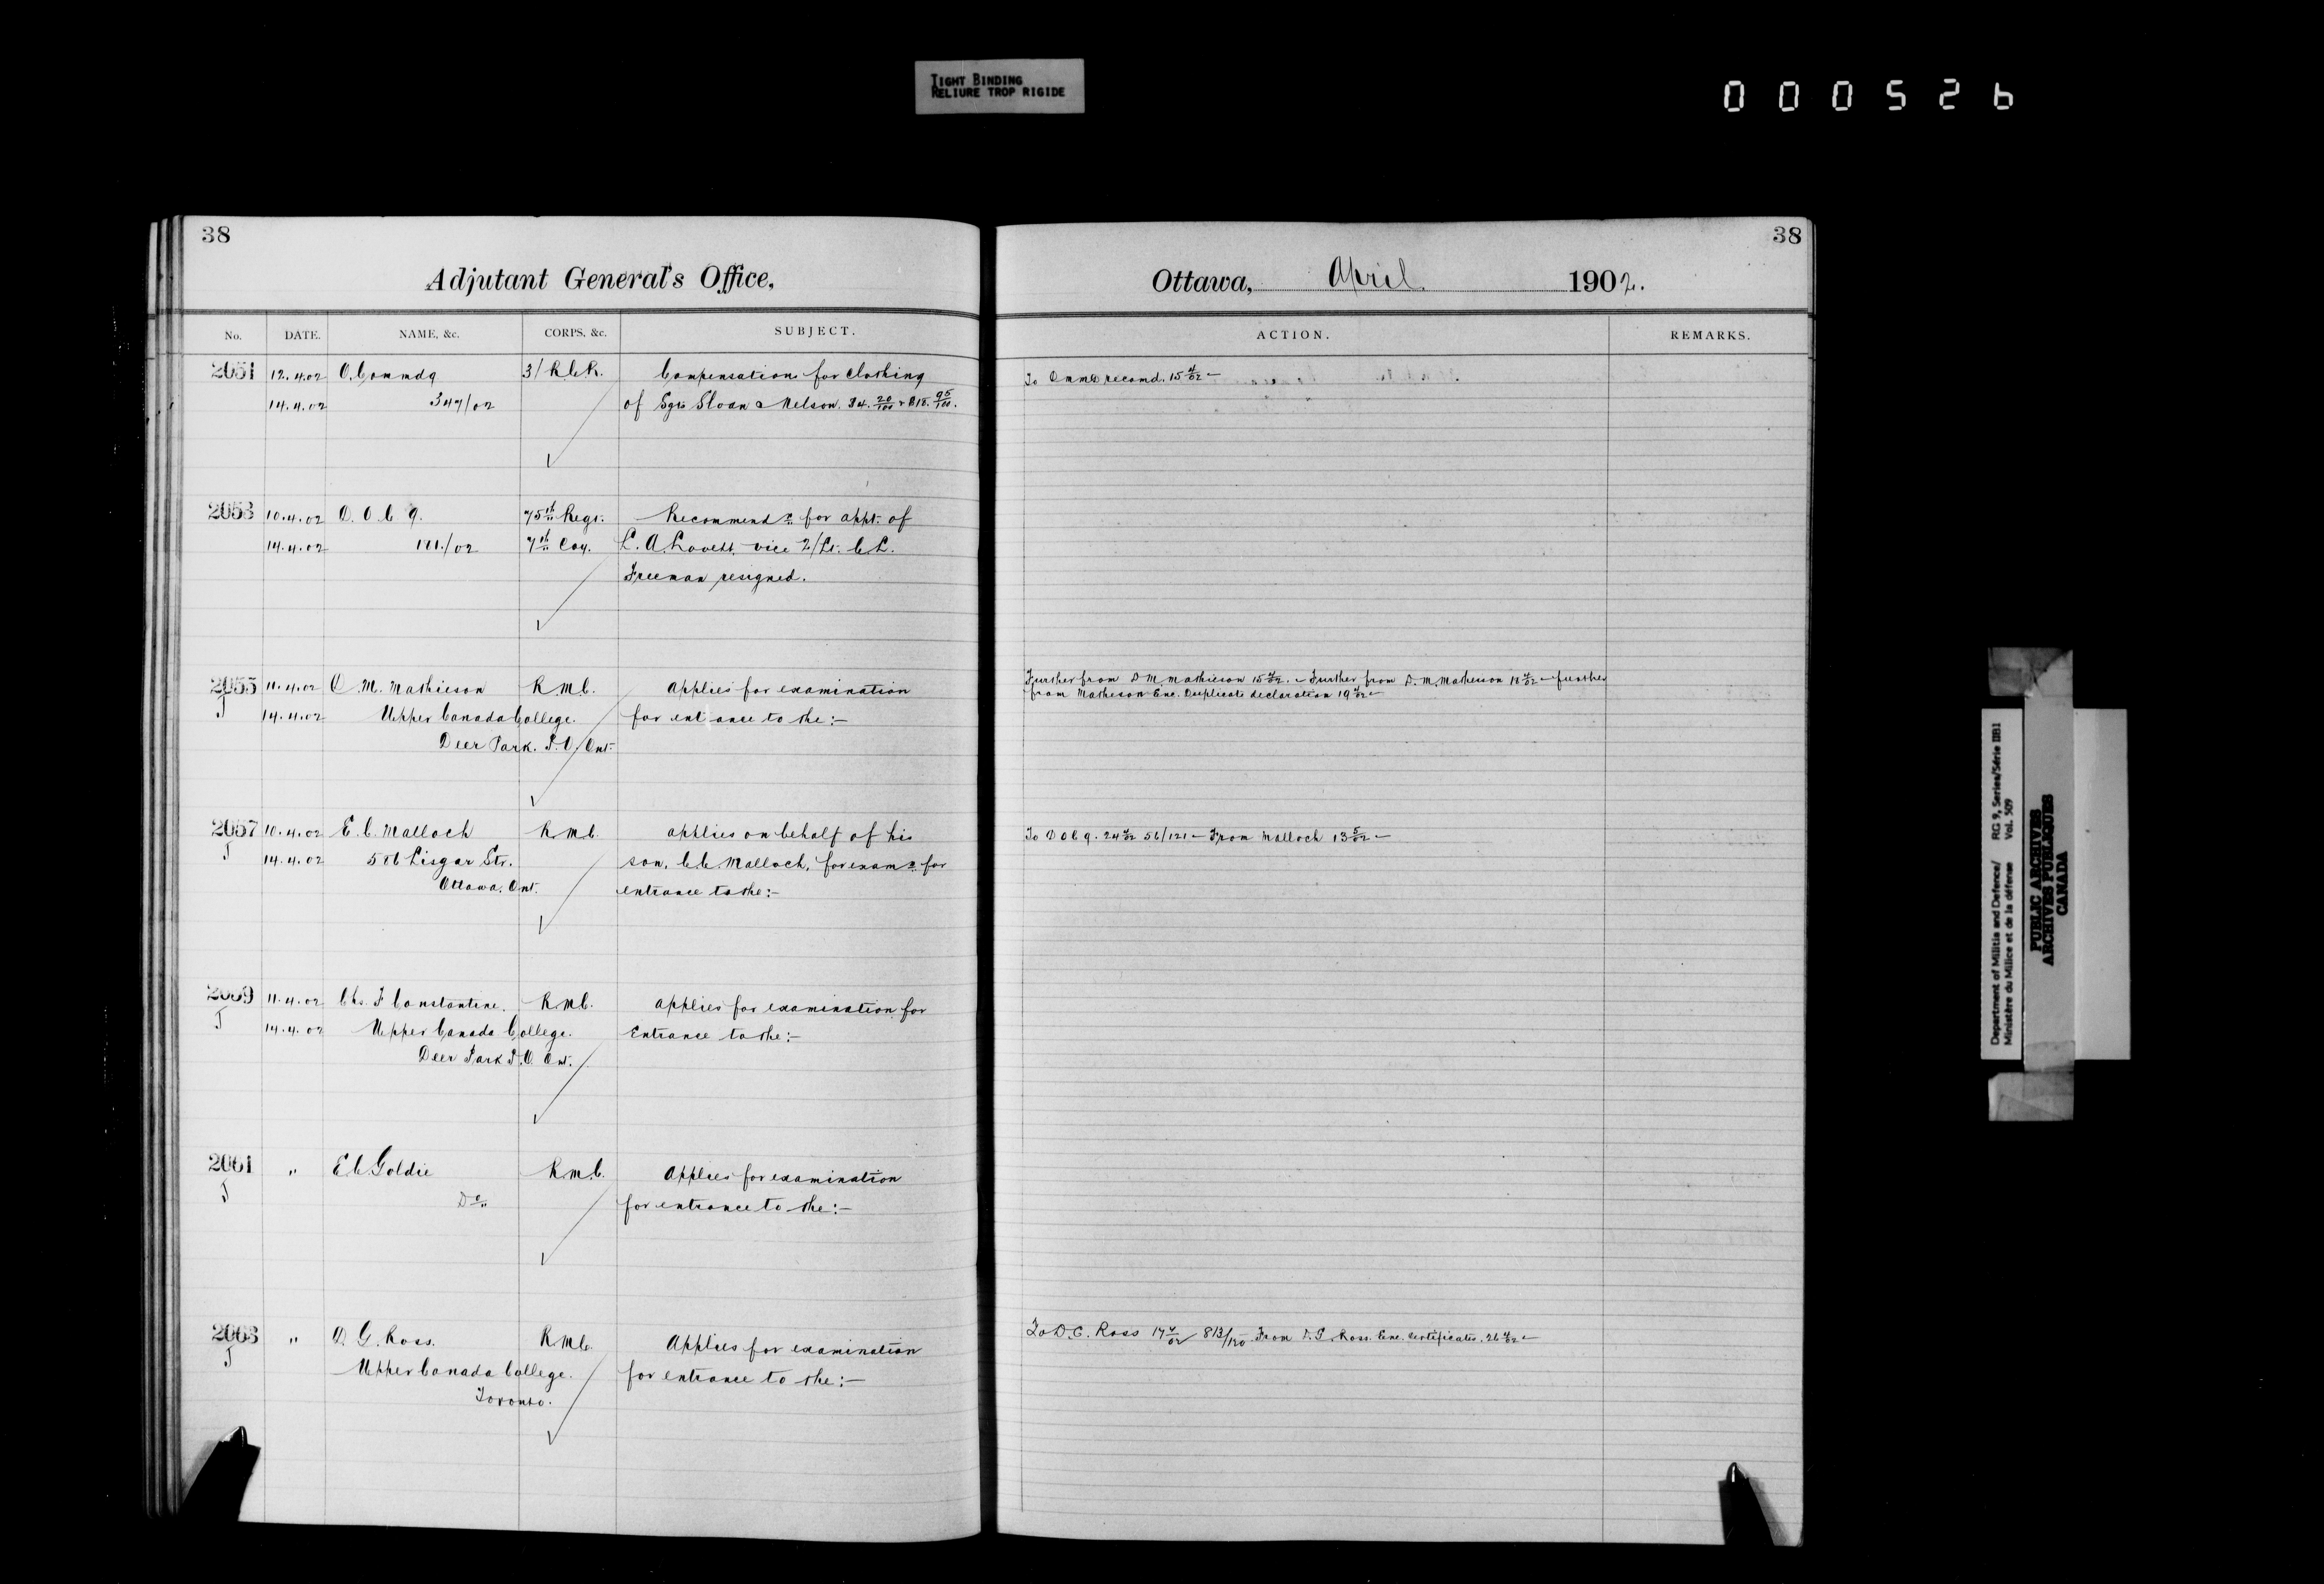 TIGHT BINDING
RELIURE TROP RIGIDE
000526
38
Adjutant General's Office,
No. DATE. NAME, &c. CORPS, &c. SUBJECT.
2051 12.4.02 O. Commdg 3/R.C.R. Compensation for clothing
14.4.02 347/02 of Sgts Sloan & Nelson. $4. 20/100 & $18. 95/100.
2053 10.4.02 D.O.C. 9. 75th Regt. Recommendn for appt. of
14.4.02 171./02 7th Coy. L. A. Lovett. vice 2/Lt. C.L.
Freeman resigned.
2055 11.4.02 D. M. Mathieson R.M.C. Applies for examination
J 14.4.02 Upper Canada College. for entrance to the:-
Deer Park. P.O. Ont.
2057 10.4.02 E. C. Malloch R.M.C. applies on behalf of his
J 14.4.02 586 Lisgar Str. son, C.C. Malloch, for examn for
Ottawa. Ont. entrance to the:-
2059 11.4.02 Chs. F Constantine. R.M.C. applies for examination for
J 14.4.02 Upper Canada College. Entrance to the:-
Deer Park P.O. Ont.
2061 " E C Goldie R.M.C. Applies for examination
J Do for entrance to the:-
2063 " D. G. Ross. R.M.C. Applies for examination
J Upper Canada College. for entrance to the:-
Toronto.
38
Ottawa, April 1902.
ACTION. REMARKS.
To recomd. 15 4/02 -
Further from D M Mathieson 15 4/02. - Further from D. M. Matheson 18 4/02 - further
from Matheson Enc. Duplicate declaration 19 4/02 -
To D O C 9. 24 4/02 56/121 - From Malloch 13 5/02 -
To D. G. Ross 17 4/02 813/120 From D. G Ross. Enc. Certificates. 26 4/02 -
Department of Militia and Defence/ RG 9, Series/Série IIB1
Ministère du Milice et de la défense Vol. 509
PUBLIC ARCHIVES
ARCHIVES PUBLIQUES
CANADA